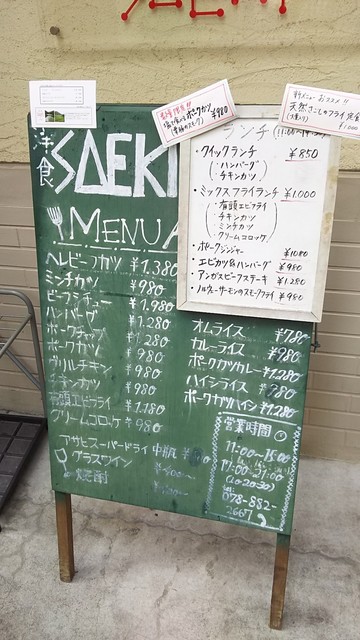 洋食 SAEKI
MENU
ヘレビーフカツ ¥1.380
ミンチカツ ¥980
ビーフシチュー ¥1.980
ハンバーグ ¥1.280
ポークチャップ ¥1.280
ポークカツ ¥980
¥980
チキンカツ ¥980
有頭エビフライ ¥1.180
クリームコロッケ ¥980
アサヒスーパードライ 中瓶
グラスワイン
焼酎
¥980
ランチ
・クイックランチ ¥850
ハンバーグ
チキンカツ
・ミックスフライランチ ¥1,000
有頭エビフライ
チキンカツ
ミンチカツ
クリームコロッケ
・ポークジンジャー ¥1080
・エビカツ&ハンバーグ ¥980
・アンガスビーフステーキ ¥1,280
・ノルウェーサーモンのスモークフライ ¥980
新メニューおススメ!!
天然さごしのフライ定食
1,000
オムライス ¥780
カレーライス ¥980
ポークカツカレー ¥1.280
ハイシライス ¥980
ポークカツハイシ ¥1.280
営業時間
11:00〜15:00
17:00〜21:00
(Lo 20:30)
078-882-
2667